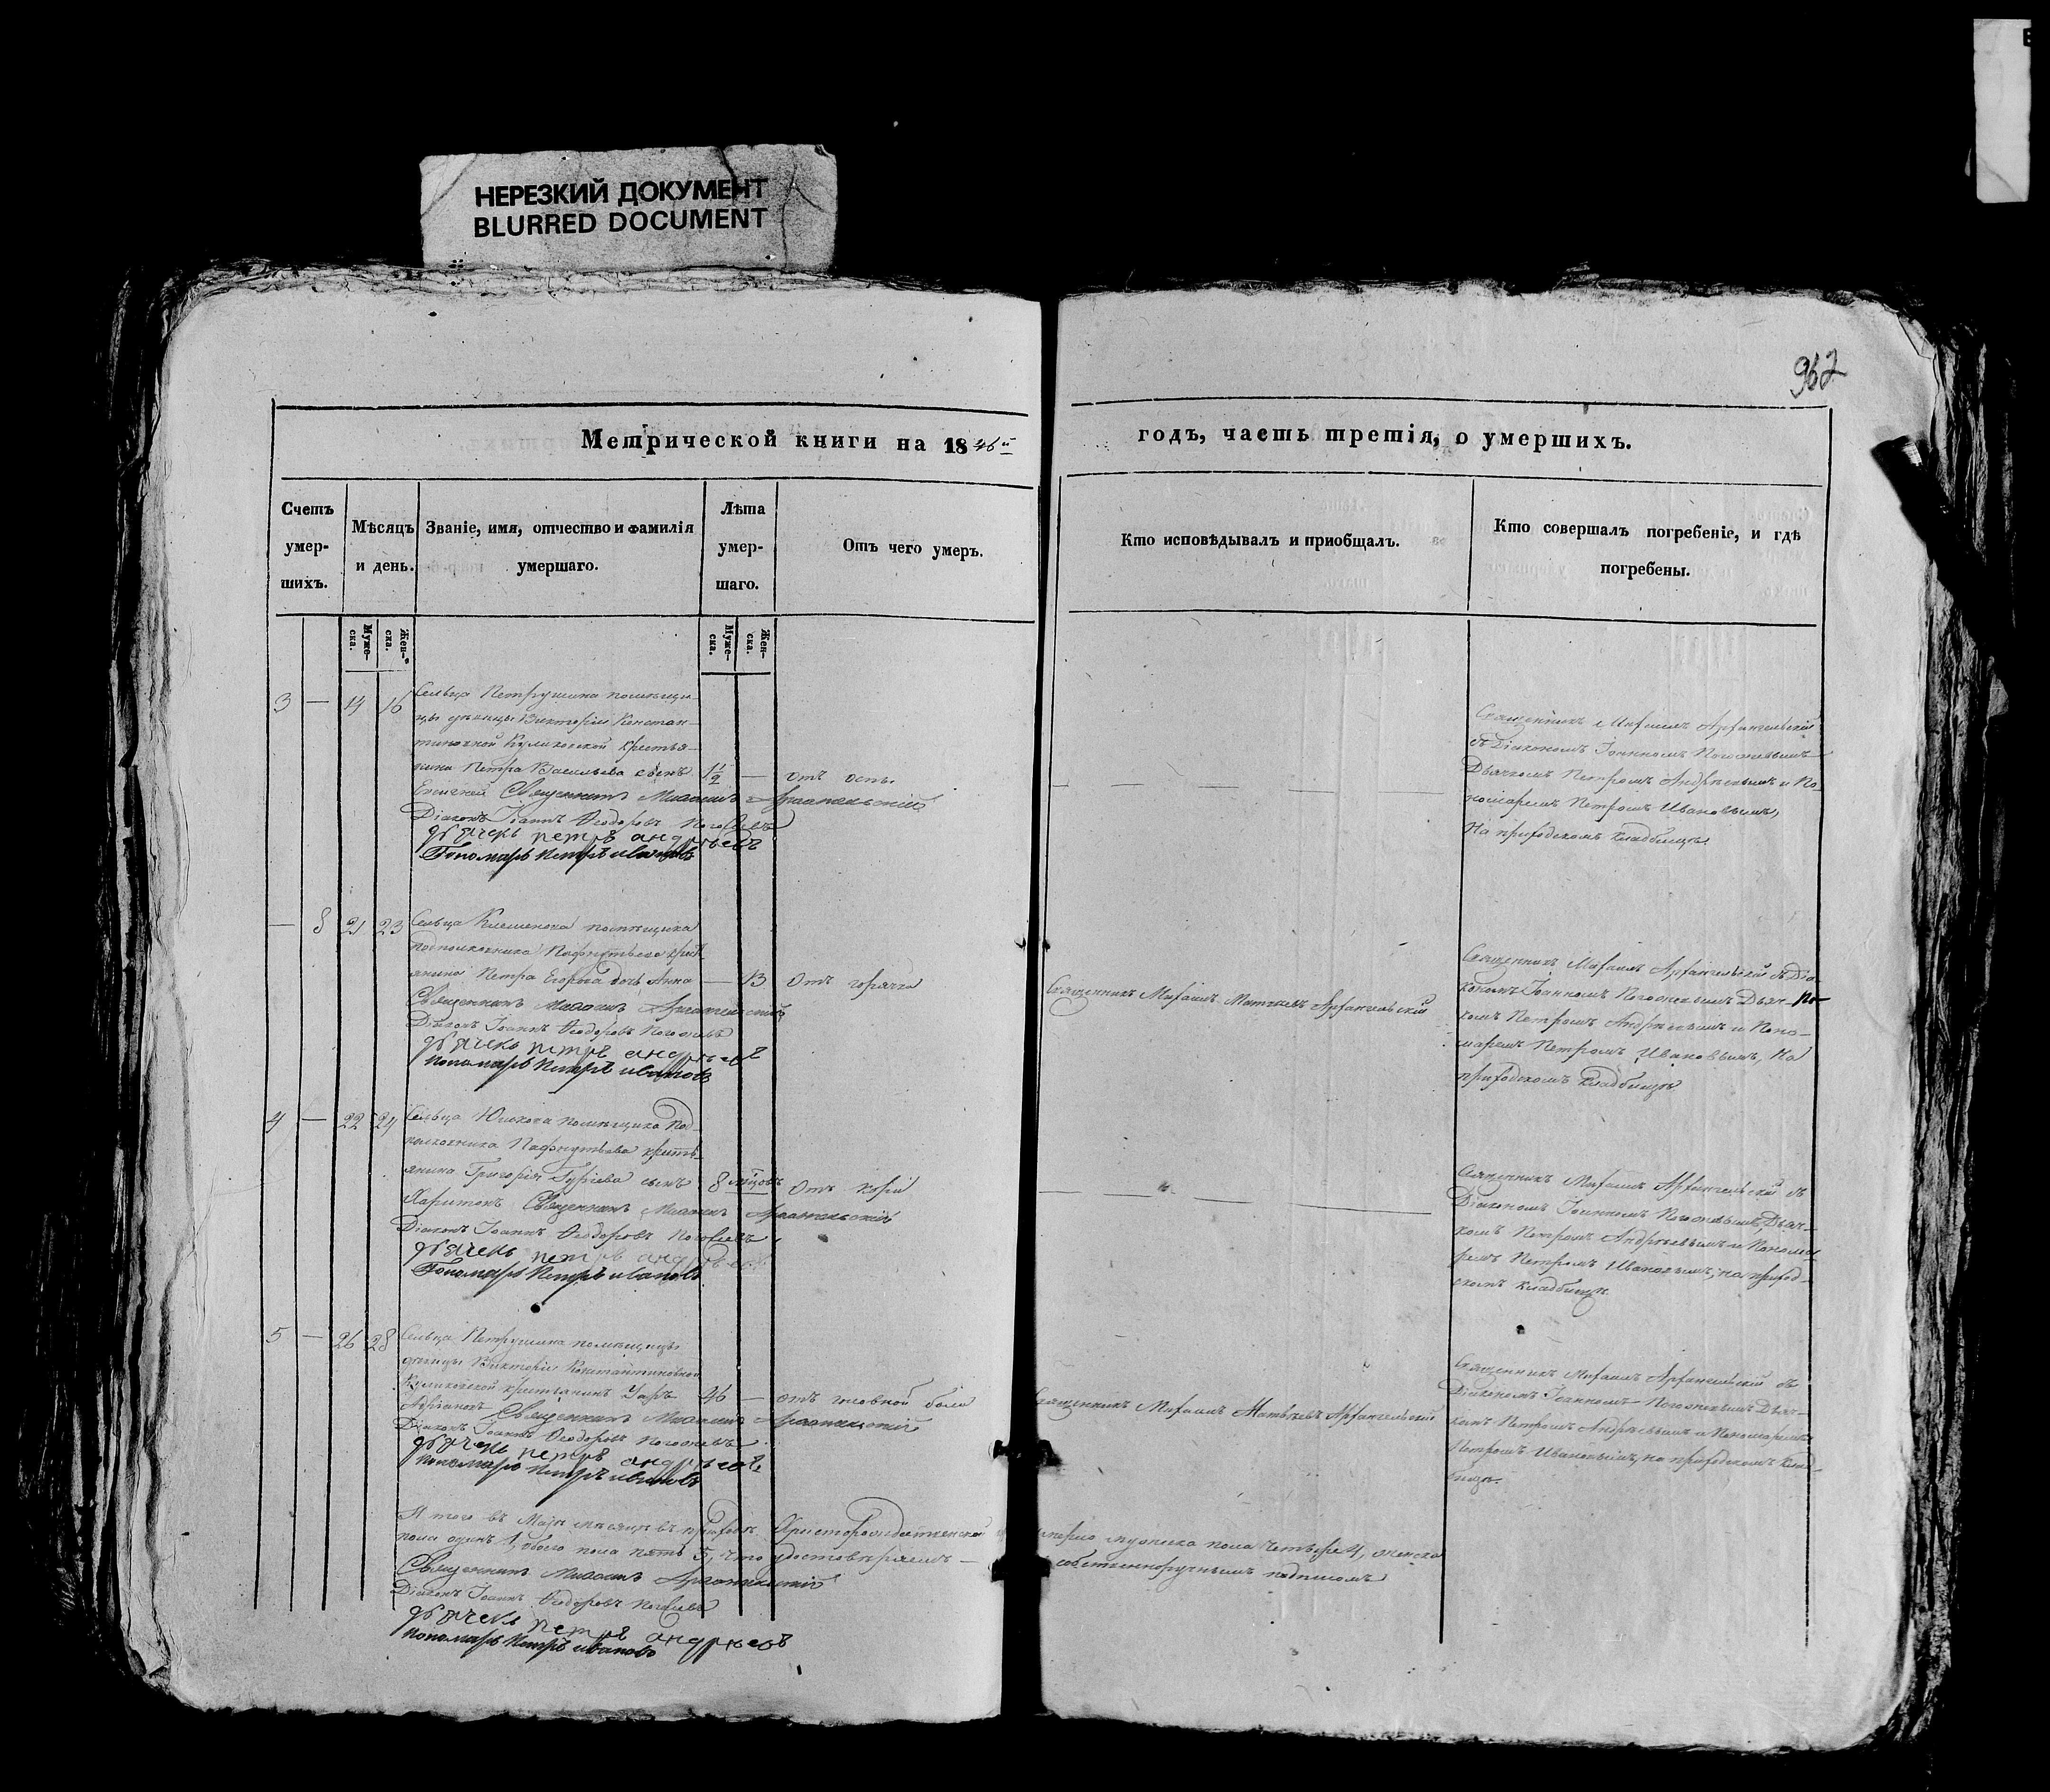 НЕРЕЗКИЙ ДОКУМЕНТ
BLURRED DOCUMENT
962
Метрической книги на 1846й
годъ, часть третія, о умершихъ.
Счетъ умер-шихъ.
Мѣсяцъ и день.
Званіе, имя, отчество и фамилія умершаго.
Лѣта умер-шаго.
Отъ чего умеръ.
Кто исповѣдывалъ и приобщалъ.
Кто совершалъ погребеніе, и гдѣ погребены.
Муже-ска.
Жен-ска.
Муже-ска.
Жен-ска.
3 — 14 16
Сельца Петрушина помѣщи-
цы дѣвицы Викторіи Констан-
тиновной Куликовской крестья-
нина Петра Васильева сынъ 1½ — отъ оспы
Священникъ Михаилъ Архангельскій
Діаконъ Іоаннъ Ѳеодоровъ
дьячекъ петръ андрѣевъ
Пономарь Петръ ивановъ
Священникъ Михаилъ Архангельскій
съ Діакономъ Іоанномъ
Дьячкомъ Петромъ Андрѣевымъ и По-
номаремъ Петромъ Ивановымъ,
На приходскомъ кладбищѣ.
— 8 21 23
Сельца помѣщика
подполковника Пафнутьева крест-
янина Петра Егорова дочь Анна — 13 Отъ горячки
Священникъ Михаилъ Архангельскій
Діаконъ Іоаннъ Ѳеодоровъ
дьячекъ петръ андрѣевъ
пономарь Петръ ивановъ
Священникъ Михаилъ Матвѣевъ Архангельскій
Священникъ Михаилъ Архангельскій съ Діа-
кономъ Іоанномъ Дьяч-
комъ Петромъ Андрѣевымъ и Поно-
маремъ Петромъ Ивановымъ, На
приходскомъ кладбищѣ
4 — 22 24
Сельца помѣщика Под-
полковника Пафнутьева кресть-
янина Григорія сынъ 8 мѣсцовъ Отъ кори
Харитонъ Священникъ Михаилъ Архангельскій
Діаконъ Іоаннъ Ѳеодоровъ
дьячекъ петръ андрѣевъ
Пономарь Петръ ивановъ
Священникъ Михаилъ Архангельскій съ
Діакономъ Іоанномъ Дьяч-
комъ Петромъ Андрѣевымъ и Понома-
ремъ Петромъ Ивановымъ, на приход-
скомъ кладбищѣ.
5 — 26 28
Сельца Петрушина помѣщицы
дѣвицы Викторіи Константиновной
Куликовской крестьянинъ 46 — отъ головной боли
Священникъ Михаилъ Архангельскій
Діаконъ Іоаннъ Ѳеодоровъ
дьячекъ петръ андрѣевъ
пономарь Петръ ивановъ
Священникъ Михаилъ Матвѣевъ Архангельскій
Священникъ Михаилъ Архангельскій съ
Діакономъ Іоанномъ Дьяч-
комъ Петромъ Андрѣевымъ и Пономаремъ
Петромъ Ивановымъ, на приходскомъ клад-
бищѣ.
И того въ Маѣ мѣсяцѣ въ приходѣ Христорождественской умерло мужеска пола четыре 4, женска
пола одинъ 1, обоего пола пять 5, что удостовѣряемъ — собственноручнымъ подписомъ
Священникъ Михаилъ Архангельскій
Діаконъ Іоаннъ Ѳеодоровъ
дьячекъ петръ андрѣевъ
пономарь Петръ ивановъ